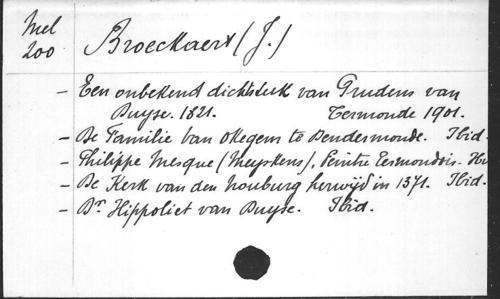 Mel
200
Broeckaert (J.)
- Een onbekend dichtstuk van Prudens van
Duyse. 1821. Termonde 1901.
- De Familie Van Okegem te Dendermonde. Ibid.
- Philippe Mesque (Meyskens), Peintre Termondois. Ibi
- De Kerk van den Nouburg herwijd in 1371. Ibid.
- Dr Hippoliet van Duyse. Ibid.